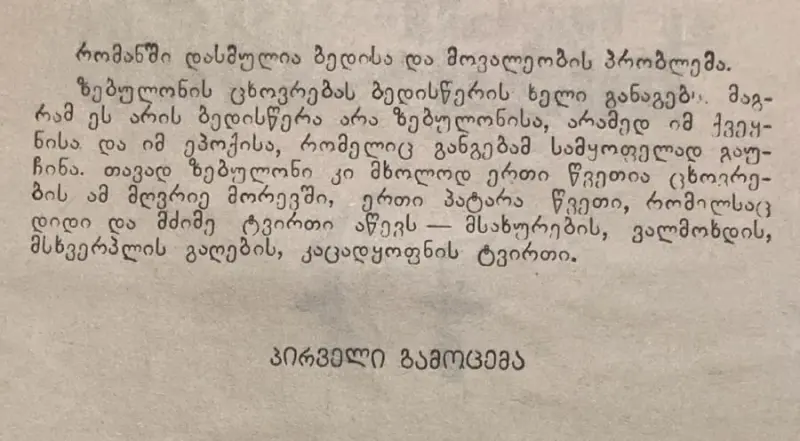 რომანში დასმულია ბედისა და მოვალეობის პრობლემა.
ზებულონის ცხოვრებას ბედისწერის ხელი განაგებს. მაგ-
რამ ეს არის ბედისწერა არა ზებულონისა, არამედ იმ ქვეყ-
ნისა და იმ ეპოქისა, რომელიც განგებამ სამყოფელად გაუ-
ჩინა. თავად ზებულონი კი მხოლოდ ერთი წვეთია ცხოვრე-
ბის ამ მღვრიე მორევში, ერთი პატარა წვეთი, რომილსაც
დიდი და მძიმე ტვირთი აწევს — მსახურების, ვალმოხდის,
მსხვერპლის გაღების, კაცადყოფნის ტვირთი.
პირველი გამოცემა